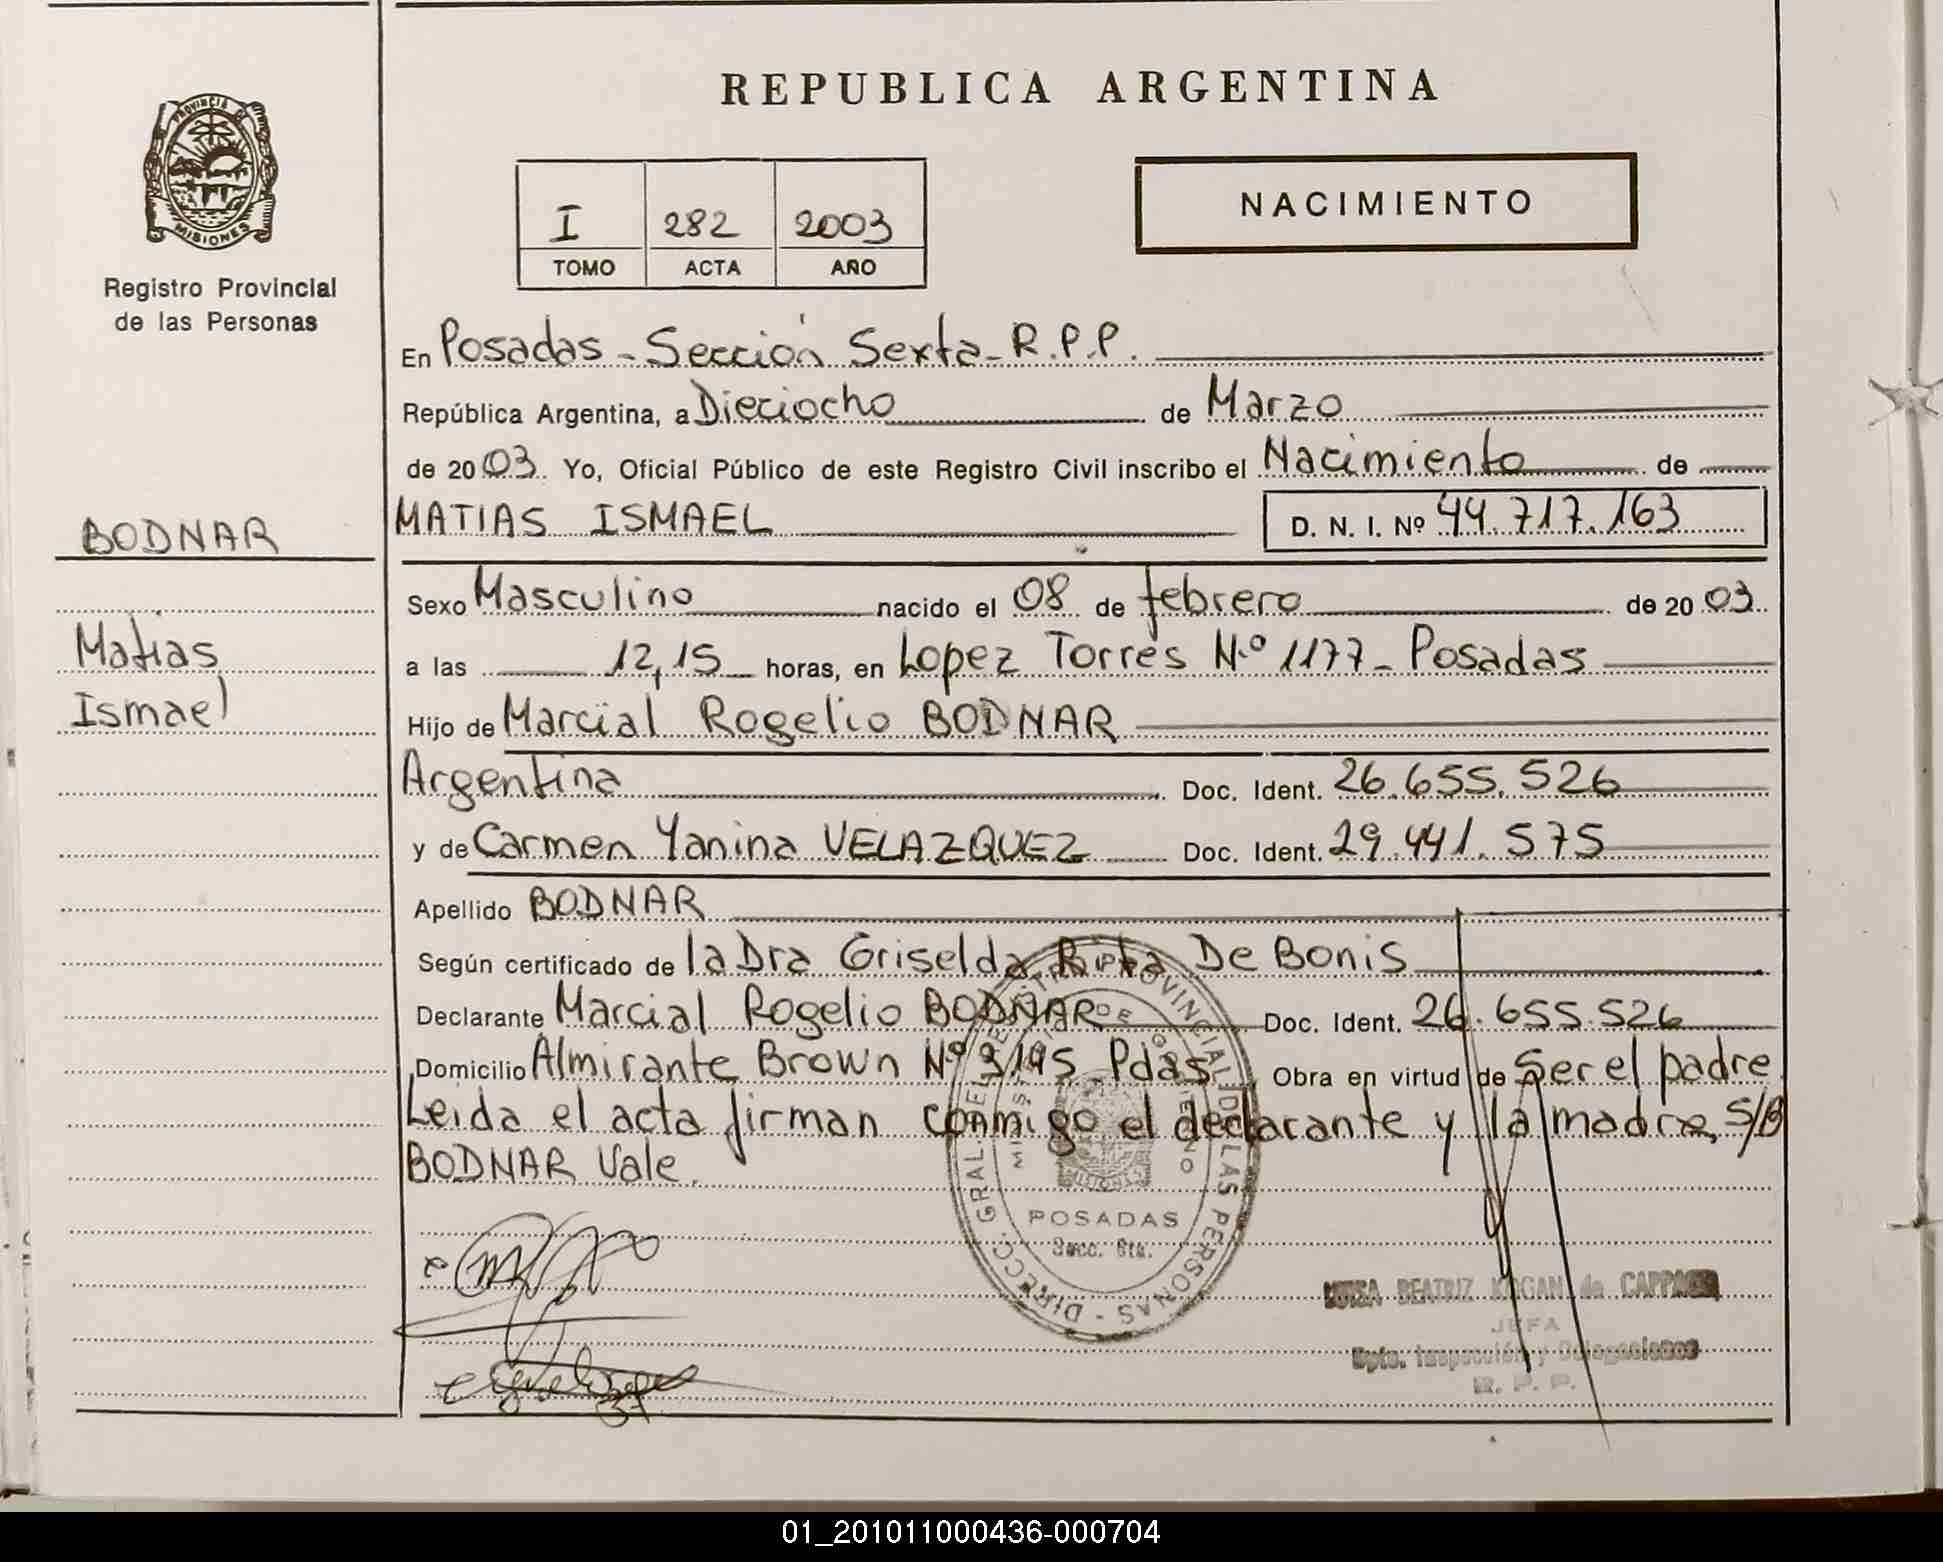 REPUBLICA ARGENTINA
PROVINCIA DE
MISIONES
Registro Provincial
de las Personas
I 282 2003
TOMO ACTA AÑO
NACIMIENTO
En Posadas - Sección Sexta - R.P.P.
República Argentina, a Dieciocho de Marzo
de 2003. Yo, Oficial Público de este Registro Civil inscribo el Nacimiento de
BODNAR
MATIAS ISMAEL D. N. I. Nº 44.717.163
Sexo Masculino nacido el 08 de febrero de 20 03
Matias
a las 12,15 horas, en Lopez Torres N.º 1177 - Posadas
Ismael
Hijo de Marcial Rogelio BODNAR
Argentina Doc. Ident. 26.655.526
y de Carmen Yanina VELAZQUEZ Doc. Ident. 29.441.575
Apellido BODNAR
Según certificado de la Dra Griselda Rita De Bonis
Declarante Marcial Rogelio BODNAR Doc. Ident. 26.655.526
Domicilio Almirante Brown Nº 3195 Pdas. Obra en virtud de Ser el padre
Leida el acta firman conmigo el declarante y la madre, S/B
BODNAR Vale.
DIRECC. GRAL. DEL REGISTRO PROVINCIAL DE LAS PERSONAS
MINISTERIO DE GOBIERNO
POSADAS
Secc. 6ta.
LUISA BEATRIZ KOGAN de
JEFA
Dpto. Inspección y Delegaciones
R. P. P.
01_201011000436-000704